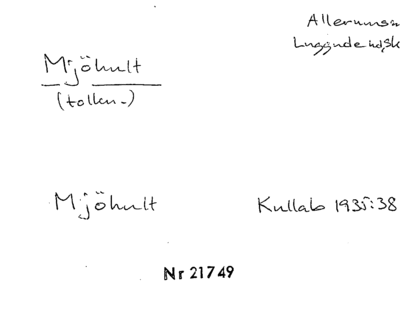 Allerums sn
Luggude hd, Sk
Mjöhult
(tolkn.)
Mjöhult Kullab 1935:38
Nr 21749